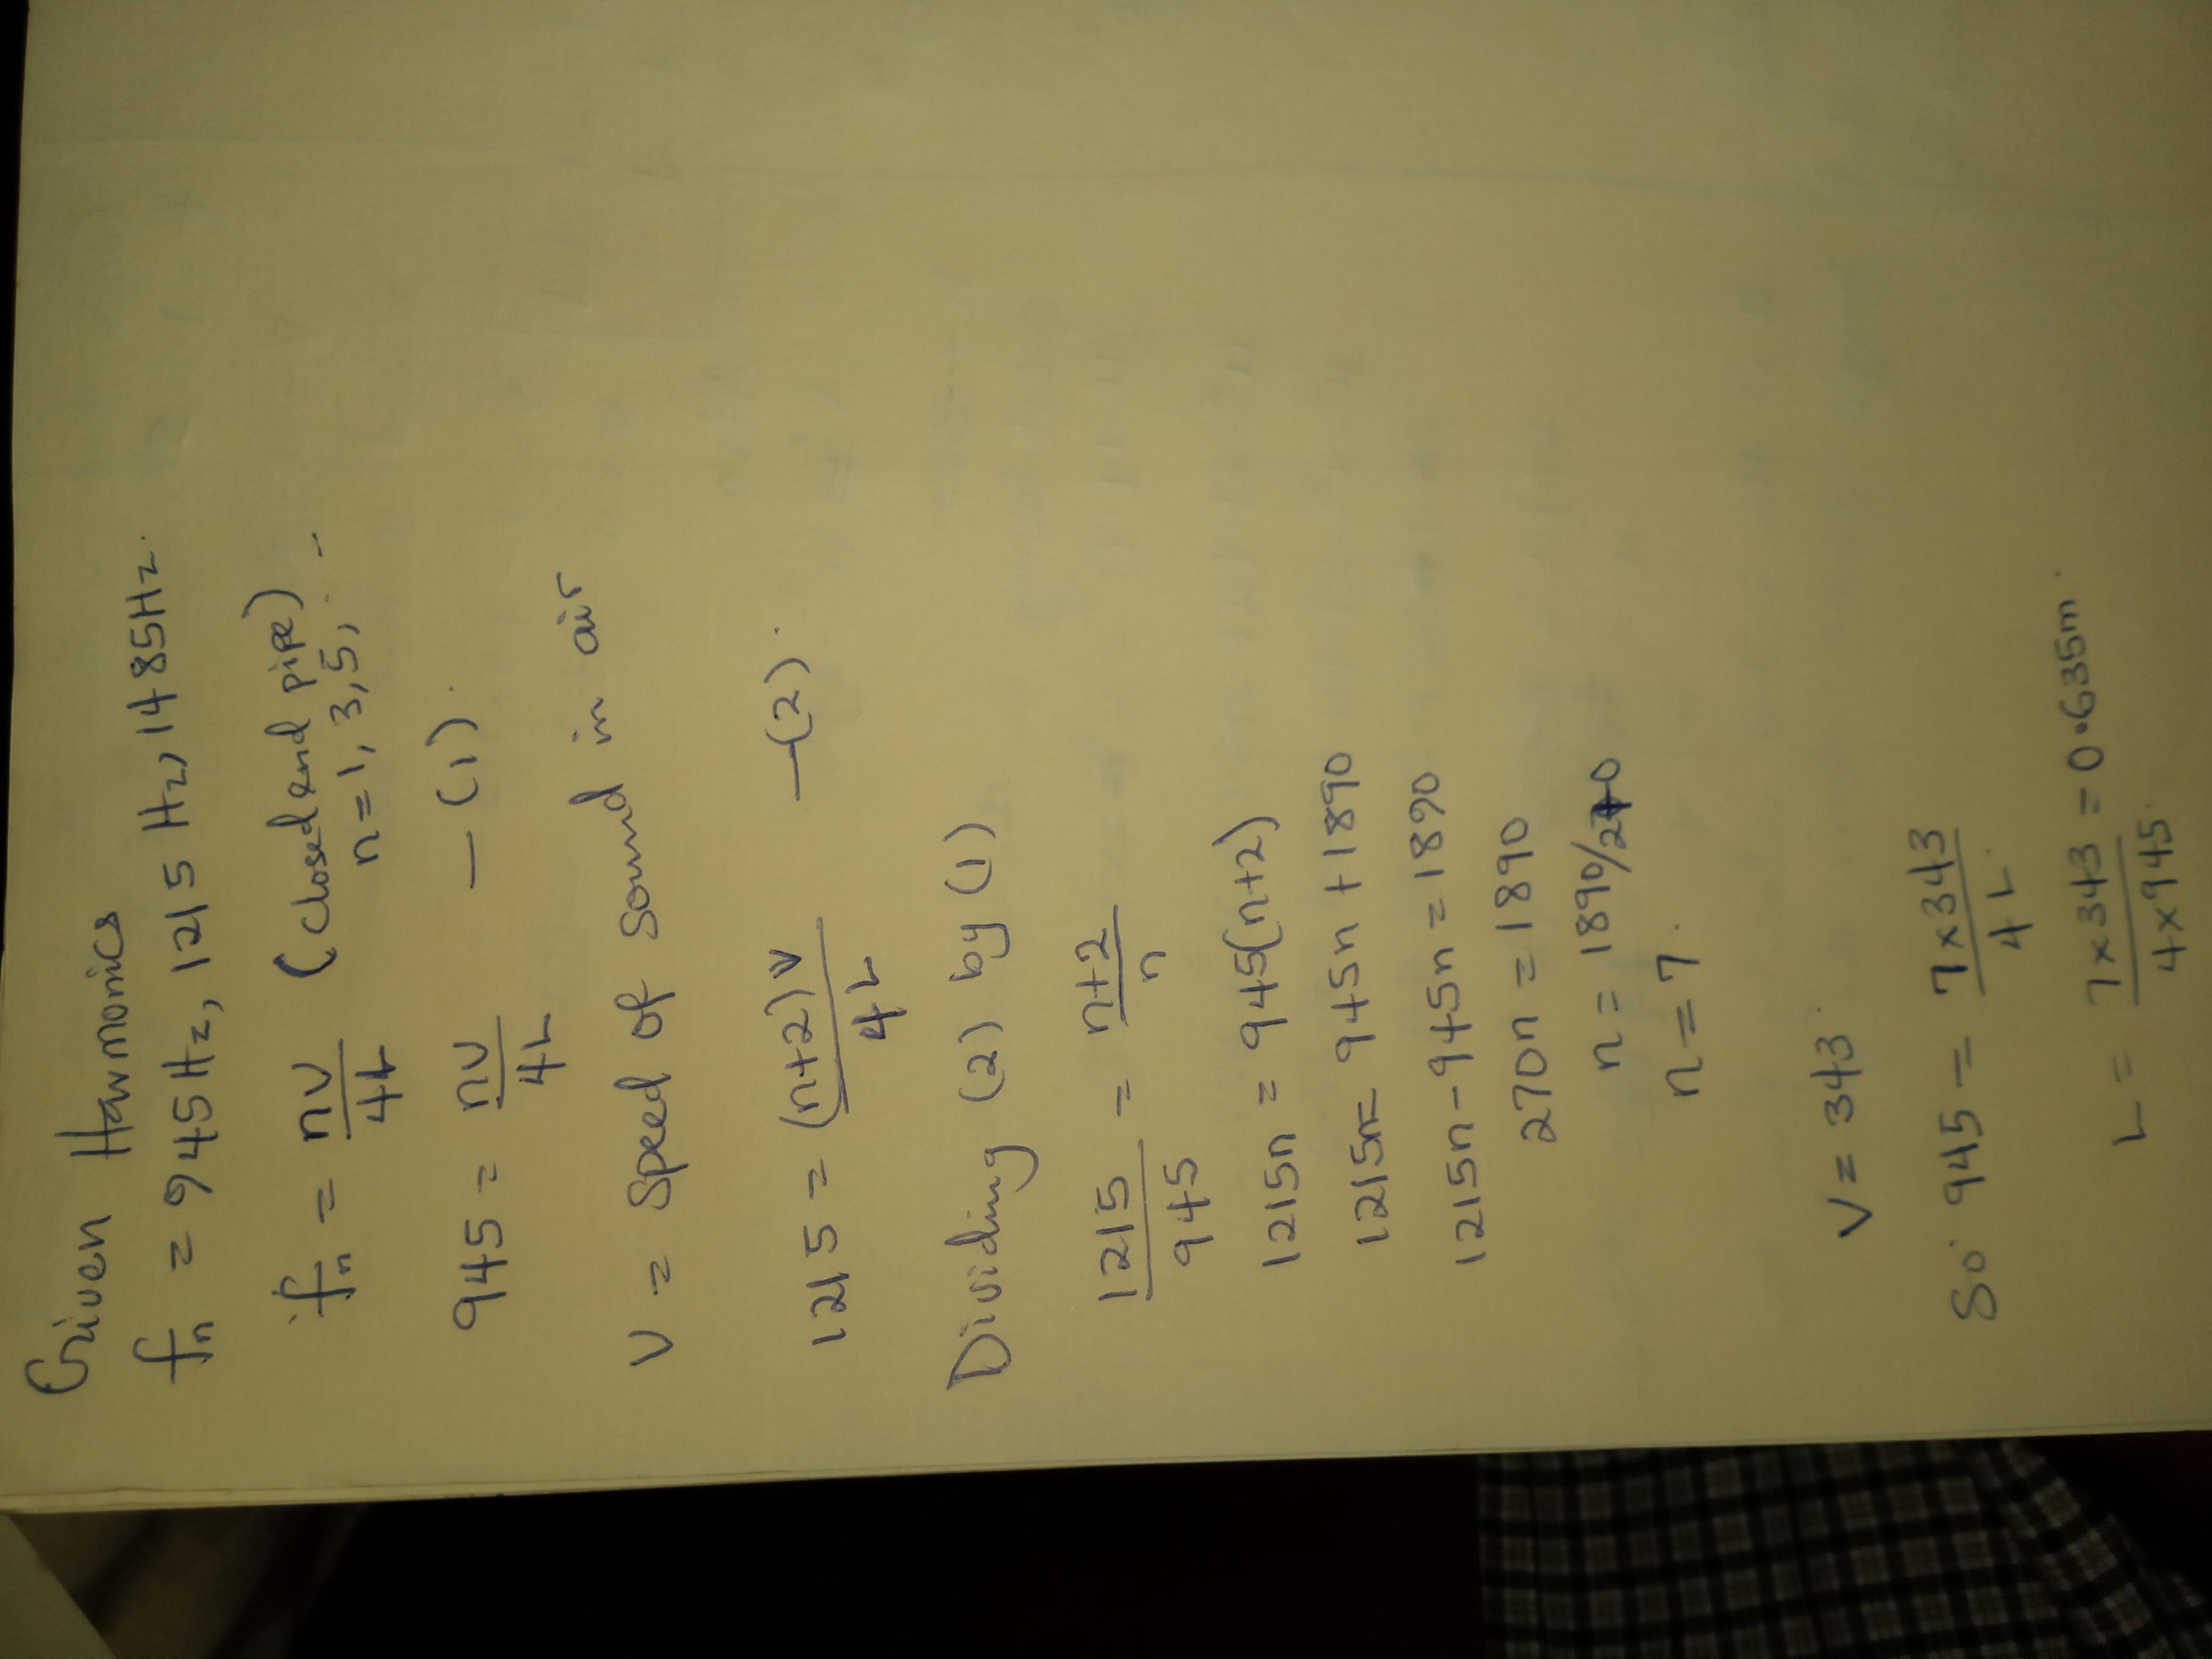 Given Harmonics
fn = 945Hz, 1215 Hz, 1485Hz.
fn = nV/4L (closed end pipe)
n=1, 3, 5, - -
945 = nV/4L — (1).
V = Speed of Sound in air
1215 = (n+2)V/4L — (2).
Dividing (2) by (1)
1215/945 = n+2/n
1215n = 945(n+2)
1215n = 945n + 1890
1215n - 945n = 1890
270n = 1890
n = 1890/270
n = 7.
V = 343.
So 945 = 7×343/4L.
L = 7×343/4×945. = 0.635m.